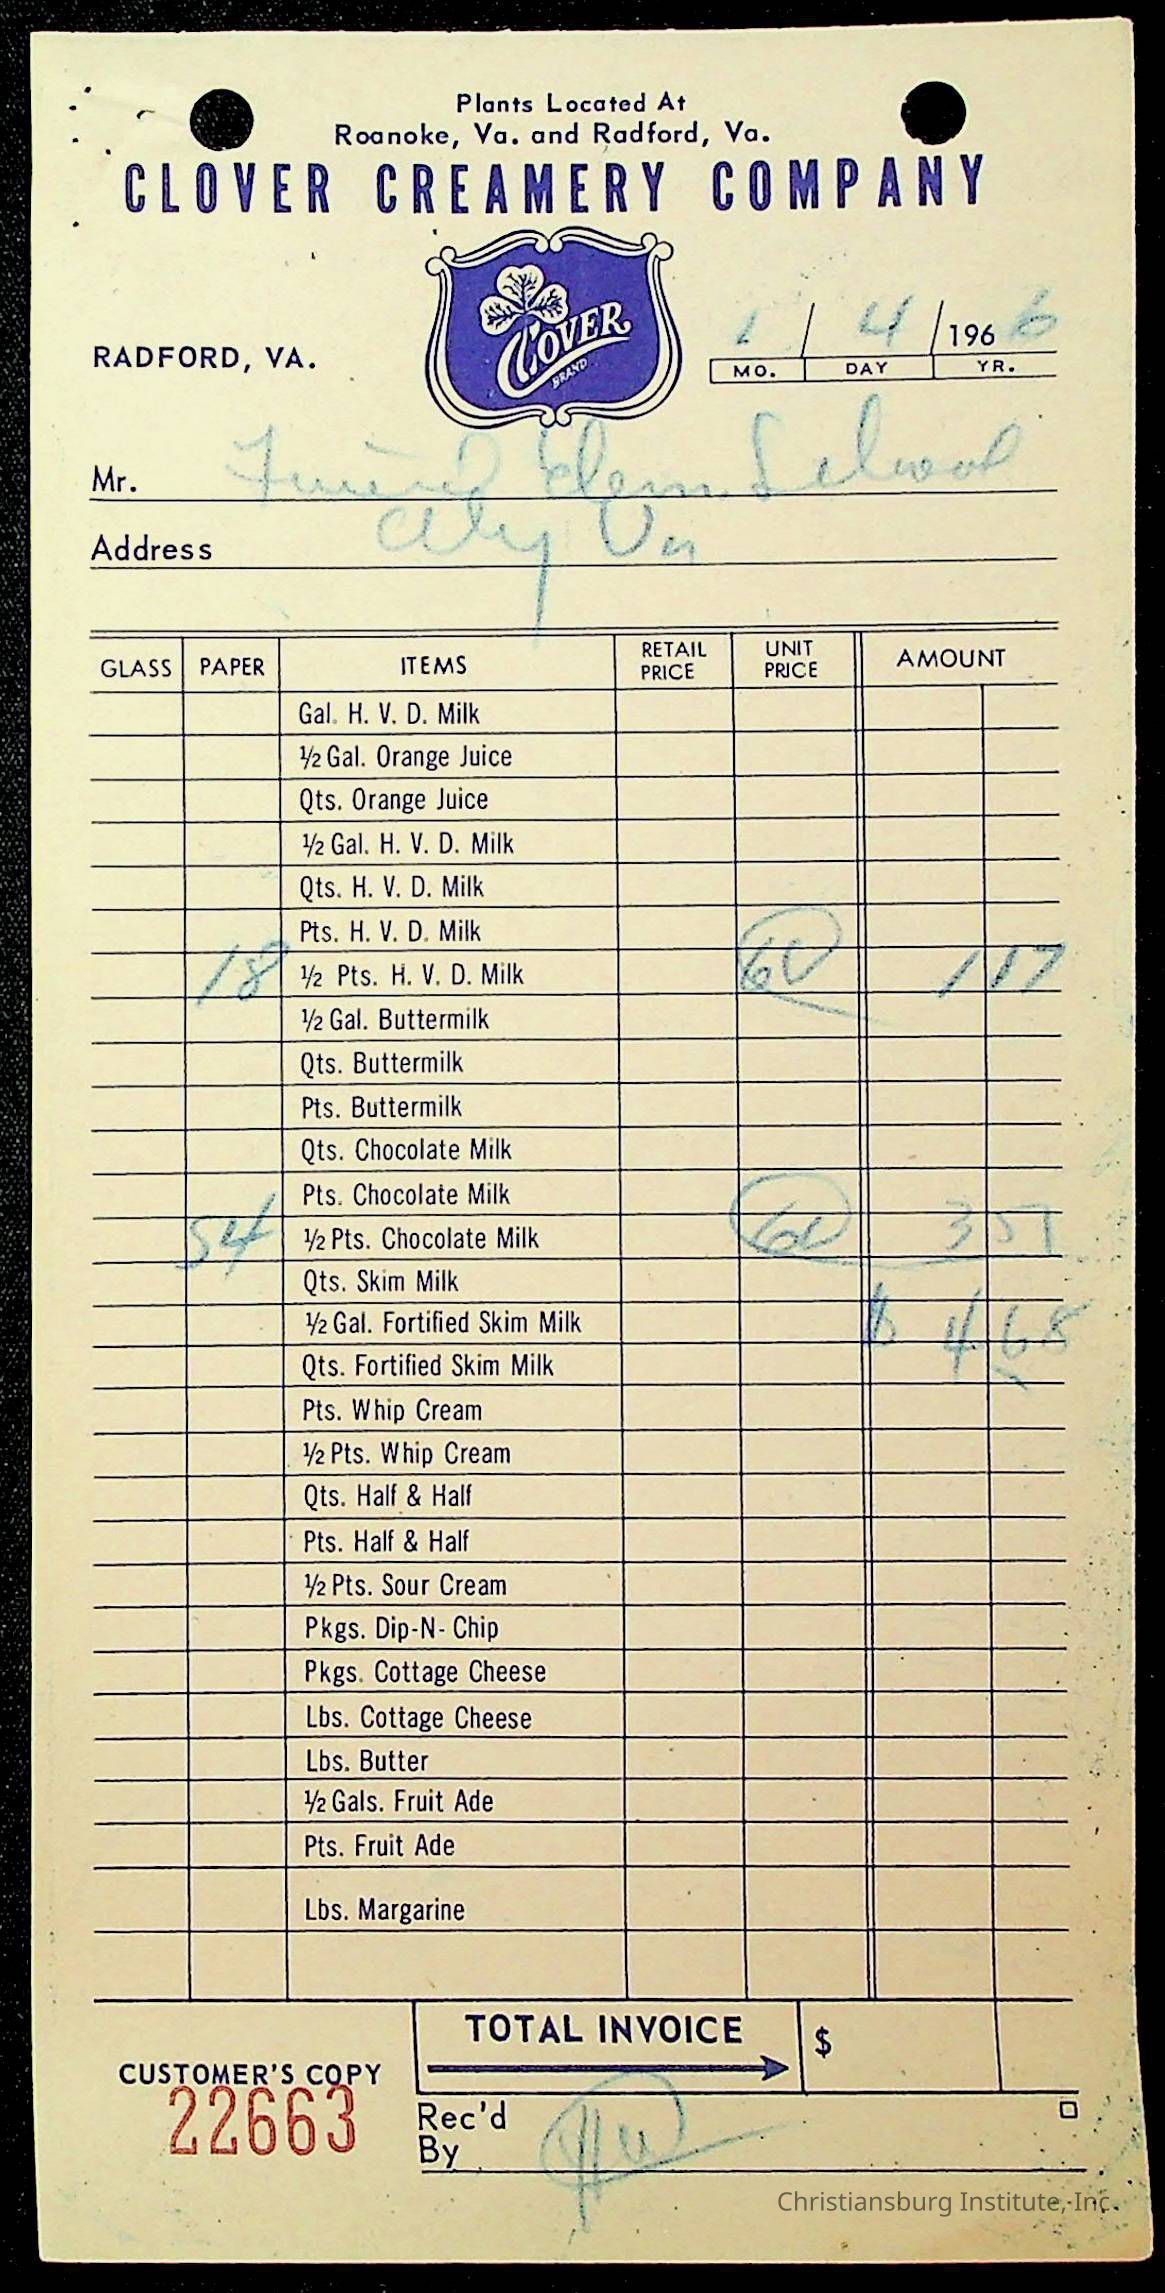 Plants Located At
Roanoke, Va. and Radford, Va.
CLOVER CREAMERY COMPANY
CLOVER
BRAND
RADFORD, VA.
1 / 4 / 1966
MO. DAY YR.
Mr. Elem. School
Address Va
GLASS PAPER ITEMS RETAIL PRICE UNIT PRICE AMOUNT
Gal. H. V. D. Milk
½ Gal. Orange Juice
Qts. Orange Juice
½ Gal. H. V. D. Milk
Qts. H. V. D. Milk
Pts. H. V. D. Milk
18 ½ Pts. H. V. D. Milk 1 17
½ Gal. Buttermilk
Qts. Buttermilk
Pts. Buttermilk
Qts. Chocolate Milk
Pts. Chocolate Milk
54 ½ Pts. Chocolate Milk 3 51
Qts. Skim Milk
½ Gal. Fortified Skim Milk $ 4 68
Qts. Fortified Skim Milk
Pts. Whip Cream
½ Pts. Whip Cream
Qts. Half & Half
Pts. Half & Half
½ Pts. Sour Cream
Pkgs. Dip-N-Chip
Pkgs. Cottage Cheese
Lbs. Cottage Cheese
Lbs. Butter
½ Gals. Fruit Ade
Pts. Fruit Ade
Lbs. Margarine
TOTAL INVOICE $
CUSTOMER'S COPY
22663
Rec'd
By
Christiansburg Institute, Inc.